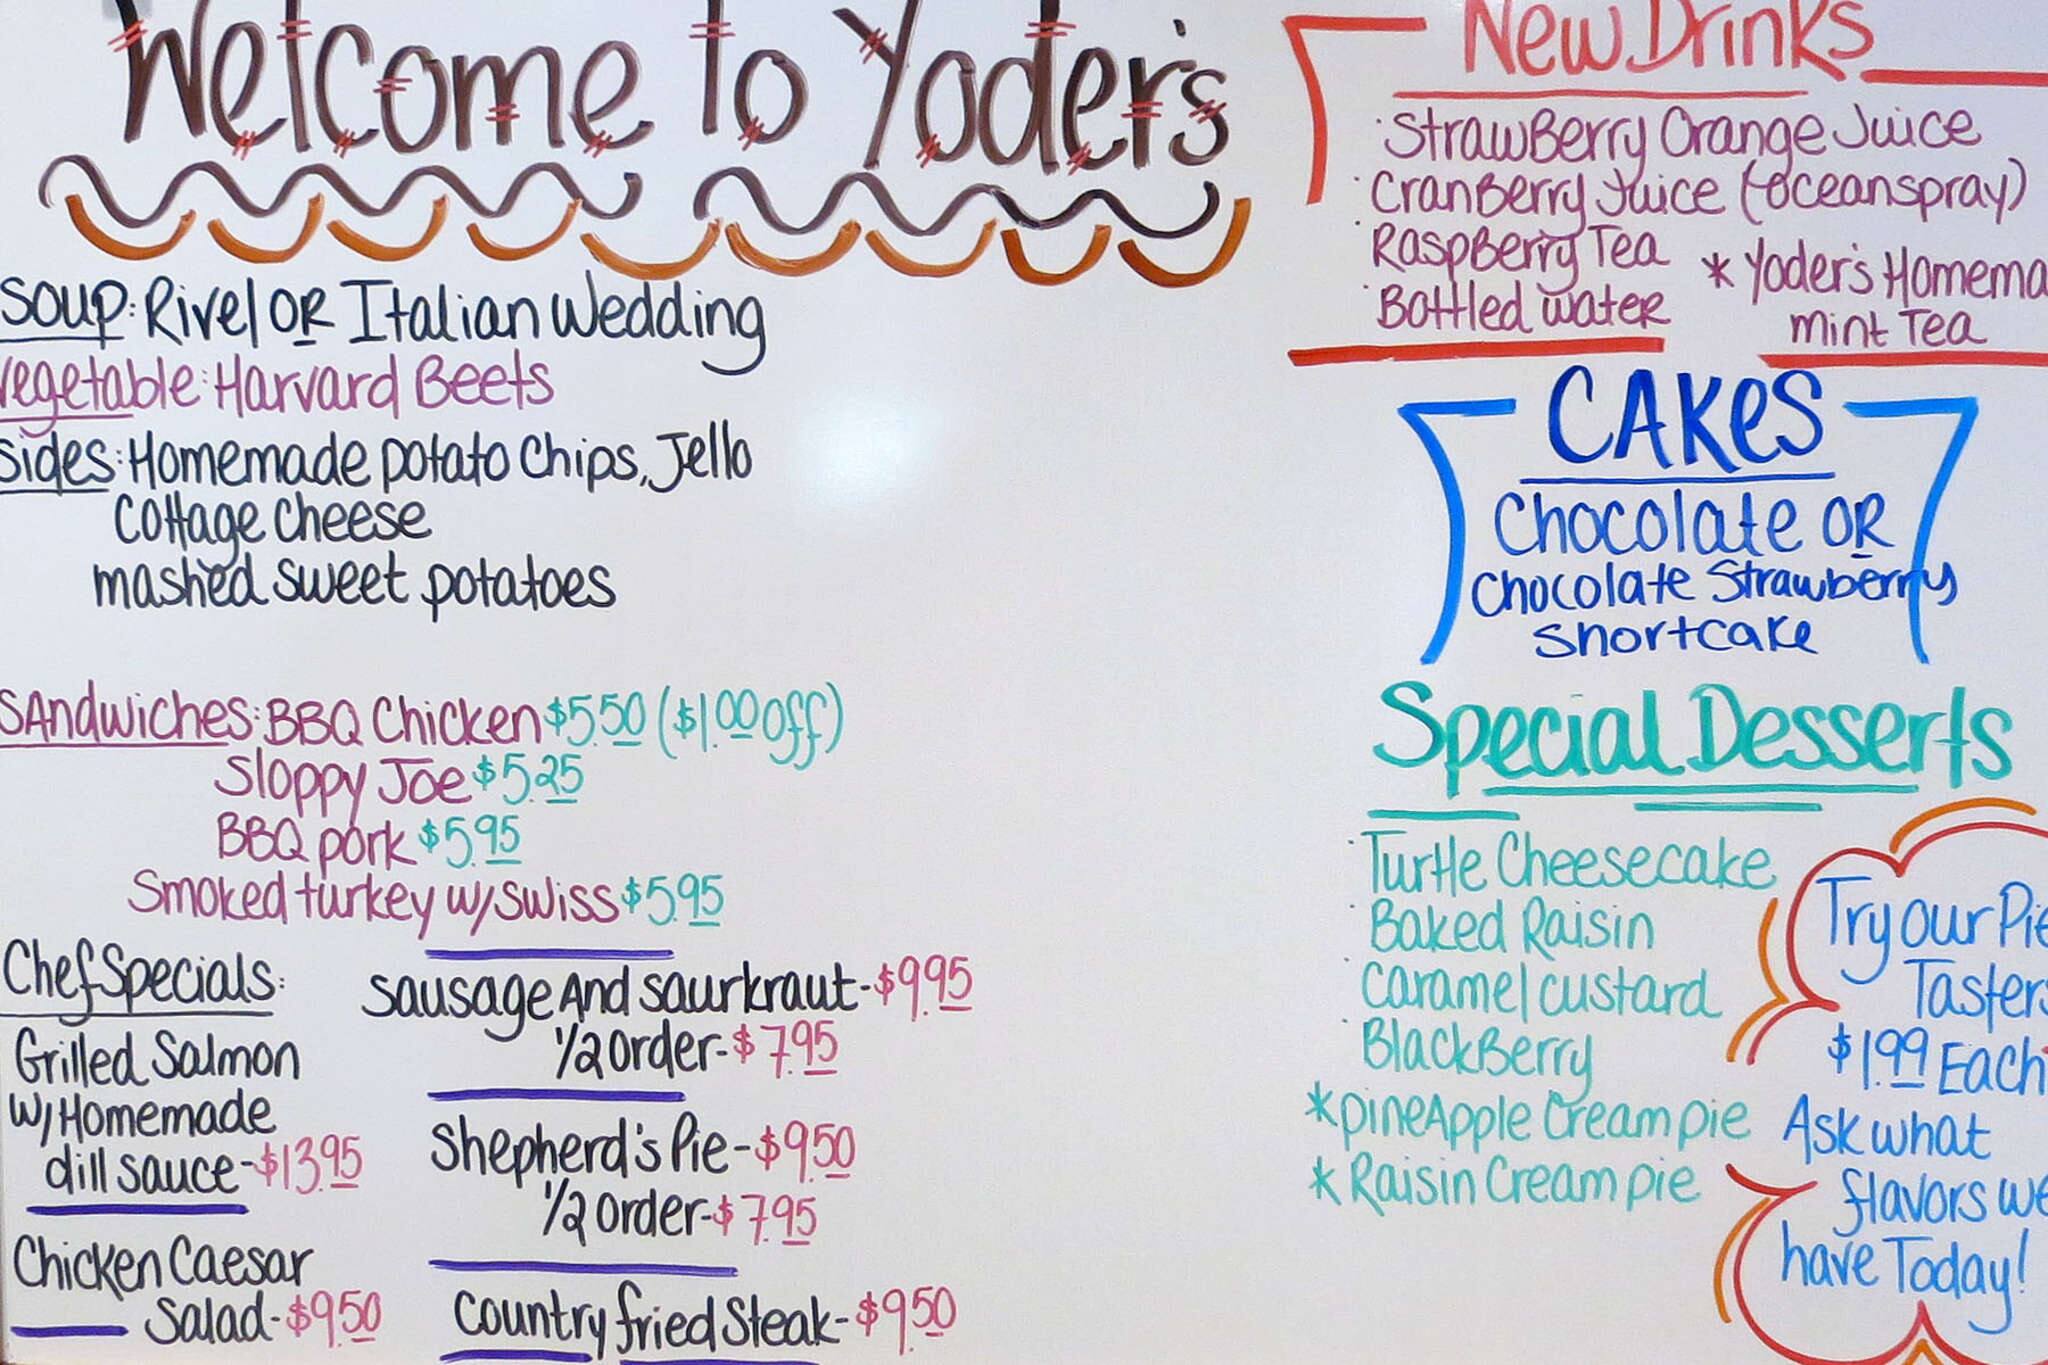 Welcome to Yoder's
Soup: Rivel OR Italian Wedding
Vegetable: Harvard Beets
Sides: Homemade potato Chips, Jello
Cottage Cheese
mashed sweet potatoes
SAndwiches: BBQ Chicken $5.50 ($1.00 off)
Sloppy Joe $5.25
BBQ pork $5.95
Smoked turkey w/swiss $5.95
Chef Specials:
Grilled Salmon
W/Homemade
dill sauce-$13.95
Chicken Caesar
Salad-$9.50
Sausage And saurkraut-$9.95
1/2 order-$7.95
Shepherd's Pie-$9.50
1/2 order-$7.95
Country fried Steak-$9.50
New Drinks
·StrawBerry Orange Juice
·CranBerry Juice (oceanspray)
·RaspBerry Tea
·Bottled water
*Yoder's Homema
mint Tea
CAKES
Chocolate OR
Chocolate Strawberry
Shortcake
Special Desserts
·Turtle Cheesecake
·Baked Raisin
·Caramel custard
·BlackBerry
*pineApple Cream pie
*Raisin Cream pie
Try our Pie
Tasters
$1.99 Each
Ask what
flavors we
have Today!